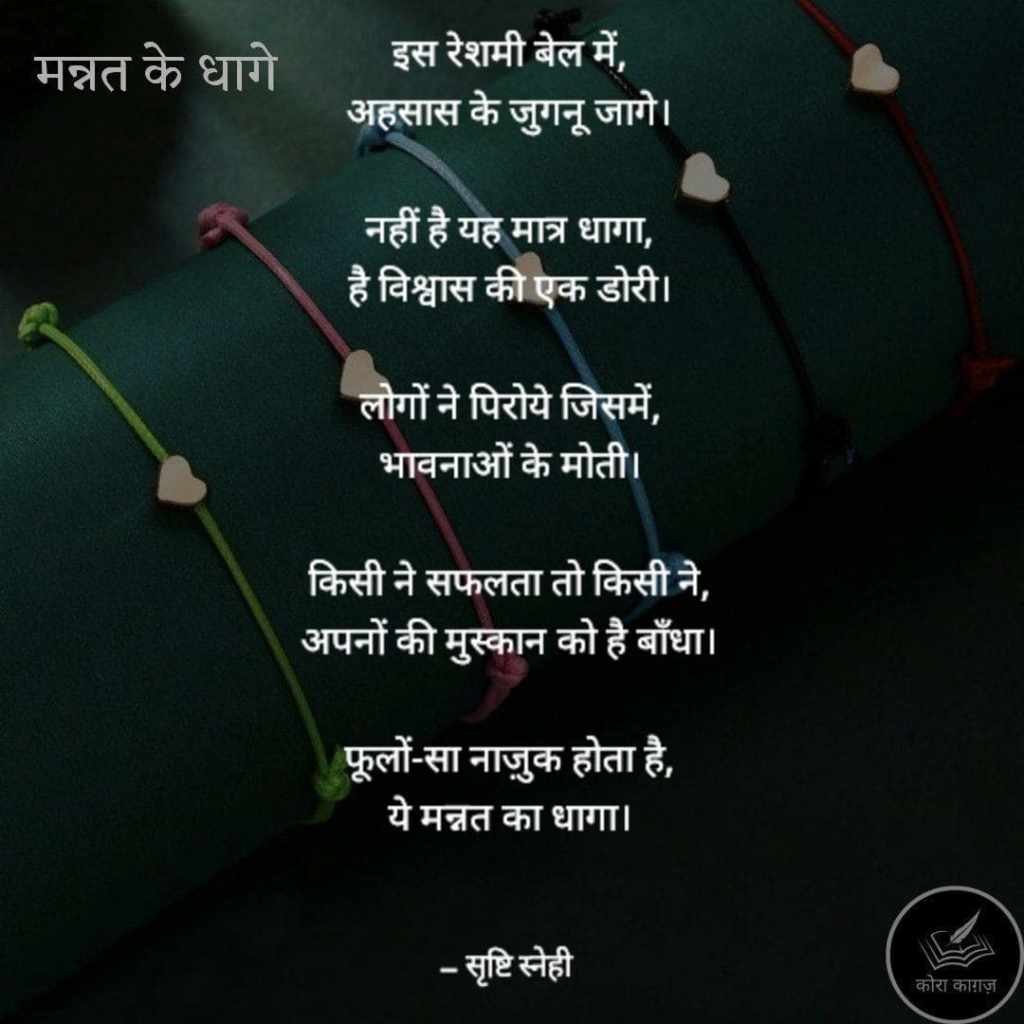 मन्नत के धागे
इस रेशमी बेल में,
अहसास के जुगनू जागे।
नहीं है यह मात्र धागा,
है विश्वास की एक डोरी।
लोगों ने पिरोये जिसमें,
भावनाओं के मोती।
किसी ने सफलता तो किसी ने,
अपनों की मुस्कान को है बाँधा।
फूलों-सा नाज़ुक होता है,
ये मन्नत का धागा।
– सृष्टि स्नेही
कोरा काग़ज़